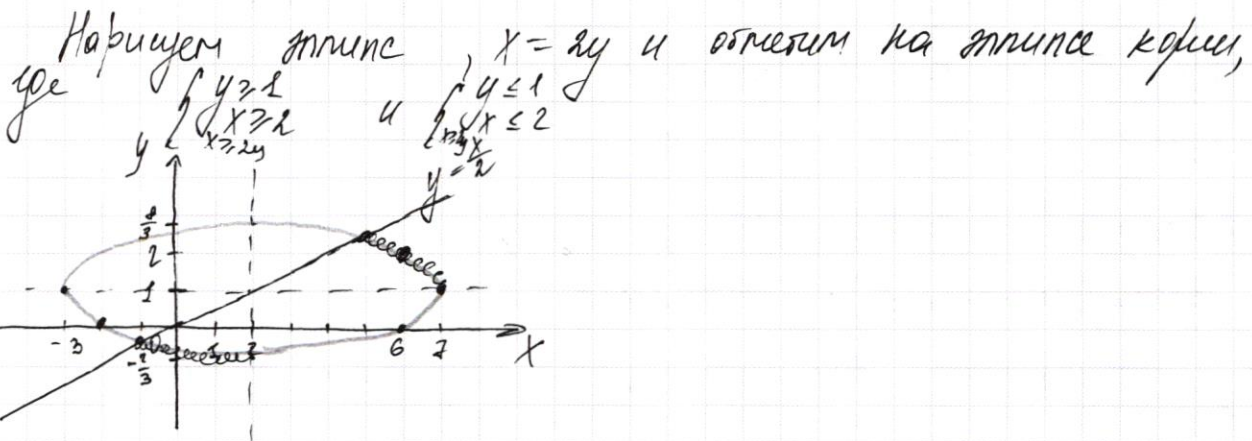 Нарисуем эллипс, x = 2y и отметим на эллипсе корни,
где { y ≥ 1 и { y ≤ 1
x ≥ 2 x ≤ 2
x ≥ 2y
y
y = x/2
8/3
2
1
-3 1 2 6 7 x
-2/3